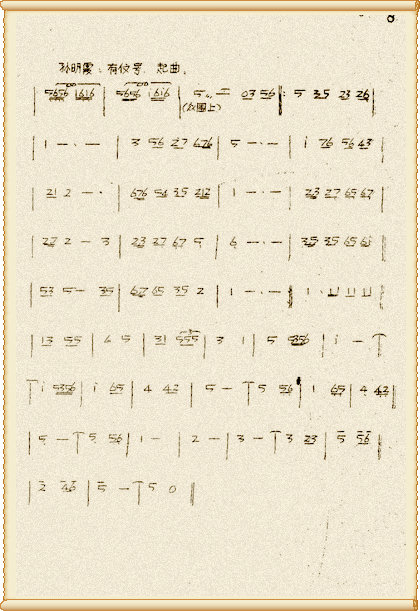 孙明霞：有仗号 起曲。
| 5656 1616 | 5656 1616 | 5 . . 二 03 56 | 5 35 23 26 |
(众圍上)
| 1 - · - | 3 56 27 676 | 5 - · - | i 76 56 43 |
| 21 2 - · | 676 54 35 212 | 1 - · - | 23 27 65 67 |
| 27 2 - 3 | 23 27 67 5 | 6 - · - | 35 35 65 65 |
| 53 5 - 35 | 67 65 35 2 | 1 - · - | 1 · 11 11 11 |
| 13 55 | 6 5 | 31 555 | 3 1 | 5 5356 | i - T
T i 5356 | i 65 | 4 42 | 5 - T 5 56 | 1 65 | 4 42 |
| 5 - T 5 56 | 1 - | 2 - | 3 - T 3 23 | 5 56 |
| 2 46 | 5 - T 5 0 |